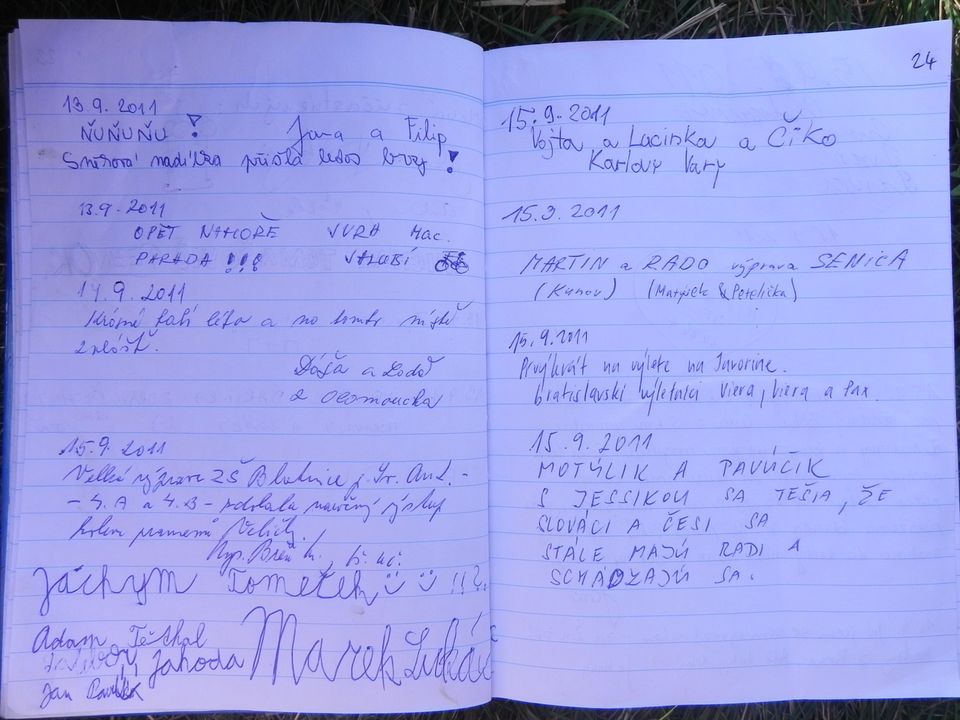 13.9.2011
ŇUŇUŇU ! Jana a Filip
nadílka přišla letos brzy !
13.9.2011
OPĚT NAHOŘE JURA MAC.
PARÁDA !!! VALUBÍ
14.9.2011
Krásné babí léto a na tomto místě
zvlášť.
Dáša a
z Olomoucka
15.9.2011
Velká výprava ZŠ Blatnice p. Sv. Ant. -
- 4.A a 4.B - zdolala náročný výstup
kolem pramenů Veličky.
Jáchym Tomeček !!
Adam
Jahoda Marek Lukáš
Jan
24
15.9.2011
Vojta a Lacinka a ČÍKO
Karlovy Vary
15.9.2011
MARTIN a RADO výprava SENICA
(Kunov) (Matýsek & Petelička)
15.9.2011
Prvýkrát na výlete na Javorine.
bratislavskí výletníci Viera, Viera a Pax.
15.9.2011
MOTÝLIK A PAVÚČIK
S JESSIKOU SA TEŠIA, ŽE
SLOVÁCI A ČESI SA
STÁLE MAJÚ RADI A
SCHÁDZAJÚ SA.